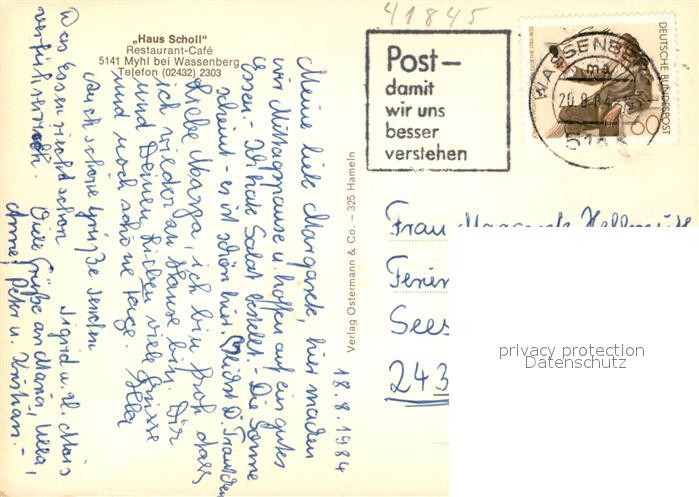 41845
„Haus Scholl"
Restaurant-Café
5141 Myhl bei Wassenberg
Telefon (02432) 2303
Post–
damit
wir uns
besser
verstehen
WASSENBERG
20.8.84
DEUTSCHE BUNDESPOST
60
18.8.1984
Meine liebe Margarete, hier machen
wir Mittagspause u. hoffen auf ein gutes
Essen.- Ich habe Salat bestellt.- Die Sonne
scheint - es ist schön hier.
Liebe Marga, ich bin froh dass
ich wieder zu Hause bin. Dir
und Deinen Lieben viele Grüsse
und noch schöne Tage.
Auch schöne Grüße senden
Sigrid u. H.
Das Essen riecht schon
verführerisch. Viele Grüße an Maria,
Anne, Peter u.
Verlag Ostermann & Co. – 325 Hameln
Frau
Ferien
Sees
243
privacy protection
Datenschutz